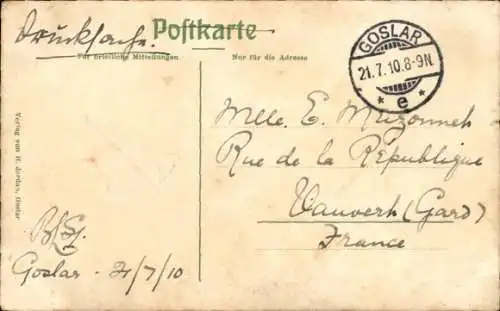 Drucksache.
Postkarte
Für briefliche Mitteilungen
Nur für die Adresse
GOSLAR
21.7.10.8-9N.
* e *
Mlle. E. Meizonneh
Rue de la République
Vauverh (Gard)
France
Goslar - 21/7/10
Verlag von H. Jordan, Goslar